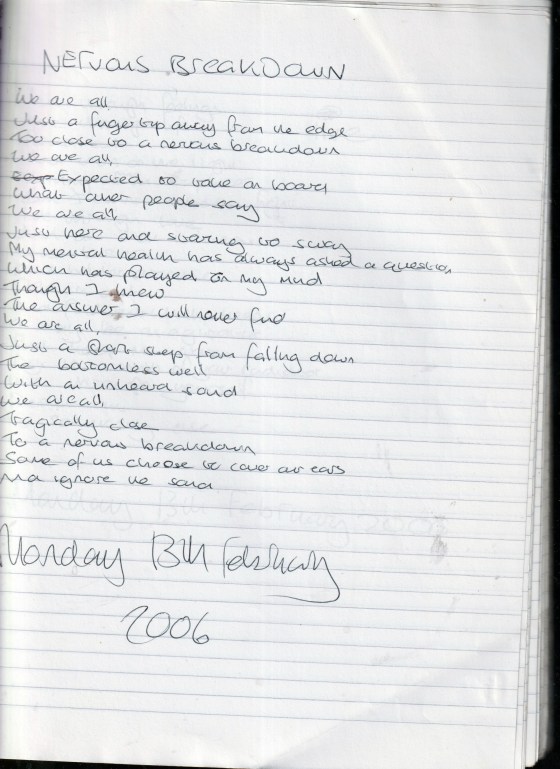 NERVOUS BREAKDOWN
We are all,
Just a fingertip away from the edge
Too close to a nervous breakdown
We are all,
Expected to take on board
What other people say
We are all,
Just here and starting to sway
My mental health has always asked a question,
Which has played on my mind
Though I knew
The answer I will never find
We are all,
Just a short step from falling down
The bottomless well
With an unheard sound
We are all,
Tragically close
To a nervous breakdown
Some of us choose to cover our ears
And ignore the sound
Monday 13th February
2006